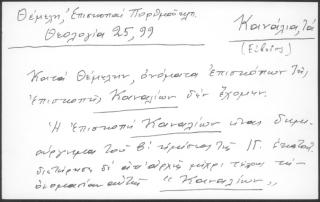 Θέμελη, Ἐπισκοπαὶ Πορθμοῦ
Θεολογία 25, 99
Κανάλια, τά
(Εὔβοιας)
Κατὰ Θέμελην, ὀνόματα ἐπισκόπων τῆς
ἐπισκοπῆς Καναλίων δὲν ἔχομεν.
Ἡ ἐπισκοπὴ Καναλίων εἶναι δημι-
ούργημα τοῦ Β' ἡμίσεος τῆς ΙΓ. ἑκατοντ.
διετήρησε δὲ ἀπ' ἀρχῆς μέχρι τέλους τὴν
ὀνομασίαν αὐτῆς "Καναλίων"